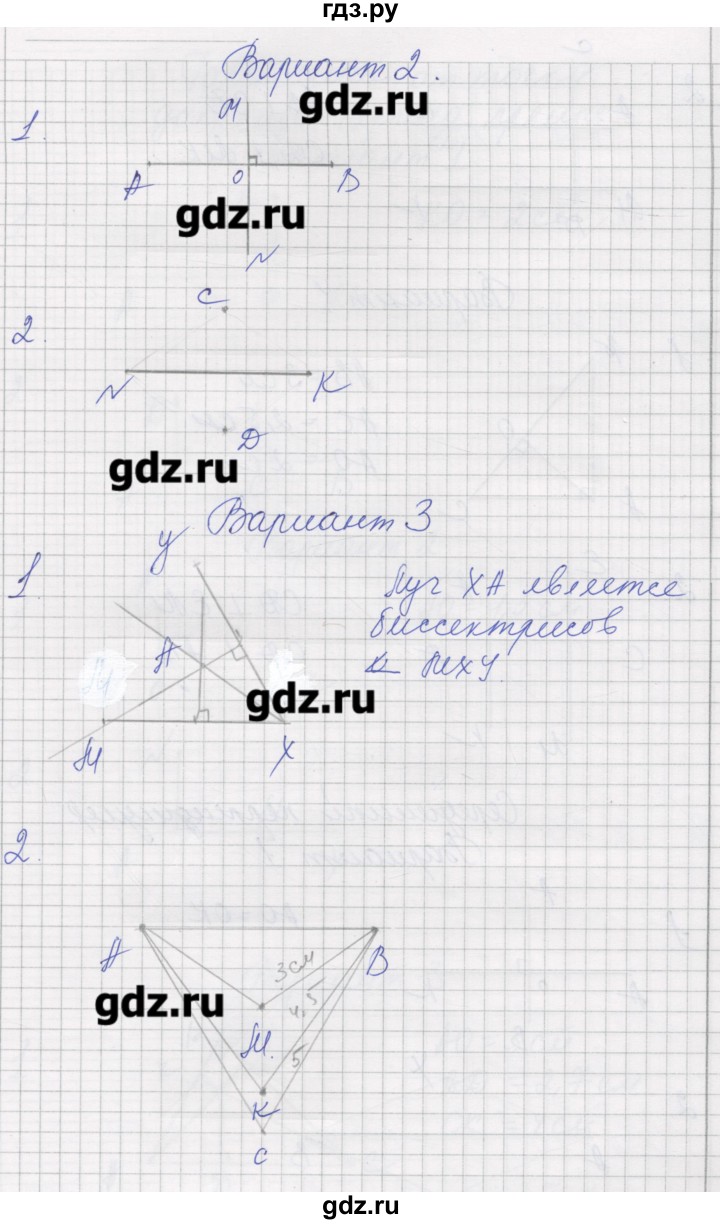 гдз.ру
Вариант 2.
gdz.ru
1.
M
A
O
B
gdz.ru
N
2.
C
N
K
D
gdz.ru
Вариант 3
1.
У
А
М
Х
gdz.ru
Луч ХА является
биссектрисов
∠ МХУ.
2.
А
В
3см
4,5
5
gdz.ru
М.
К
С
gdz.ru